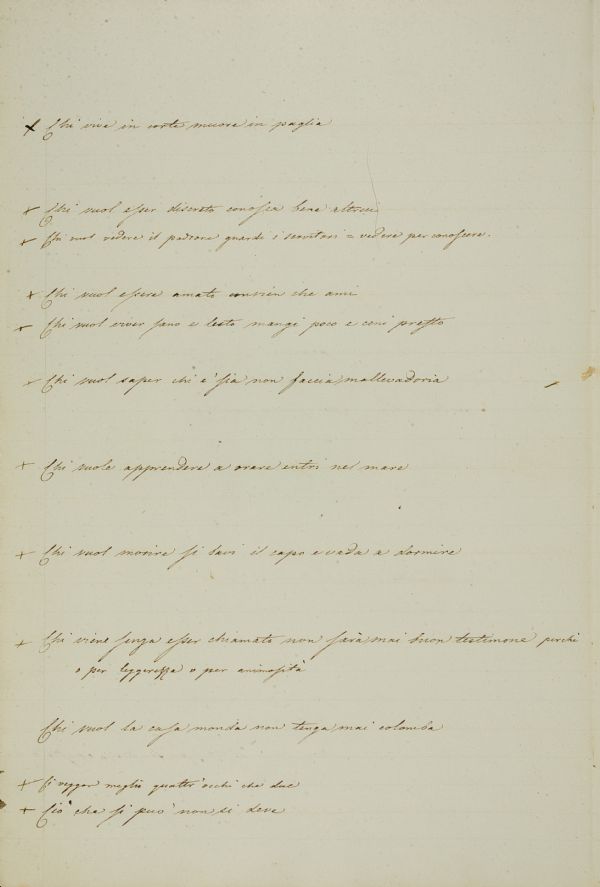 + Chi vive in corte muore in paglia
+ Chi vuol esser discreto conosca bene altrui
+ Chi vuol vedere il padrone guardi i servitori = vedere per conoscere.
+ Chi vuol essere amato convien che ami
+ Chi vuol viver sano e lesto mangi poco e ceni presto
+ Chi vuol saper chi e' sia non faccia mallevadoria
+ Chi vuole apprendere a orare entri nel mare
+ Chi vuol morire si lavi il capo e vada a dormire
+ Chi viene senza esser chiamato non sarà mai buon testimone perchè
o per leggerezza o per animosità
Chi vuol la casa monda non tenga mai colomba
+ Ci veggon meglio quattr'occhi che due
+ Ciò che si può non si deve